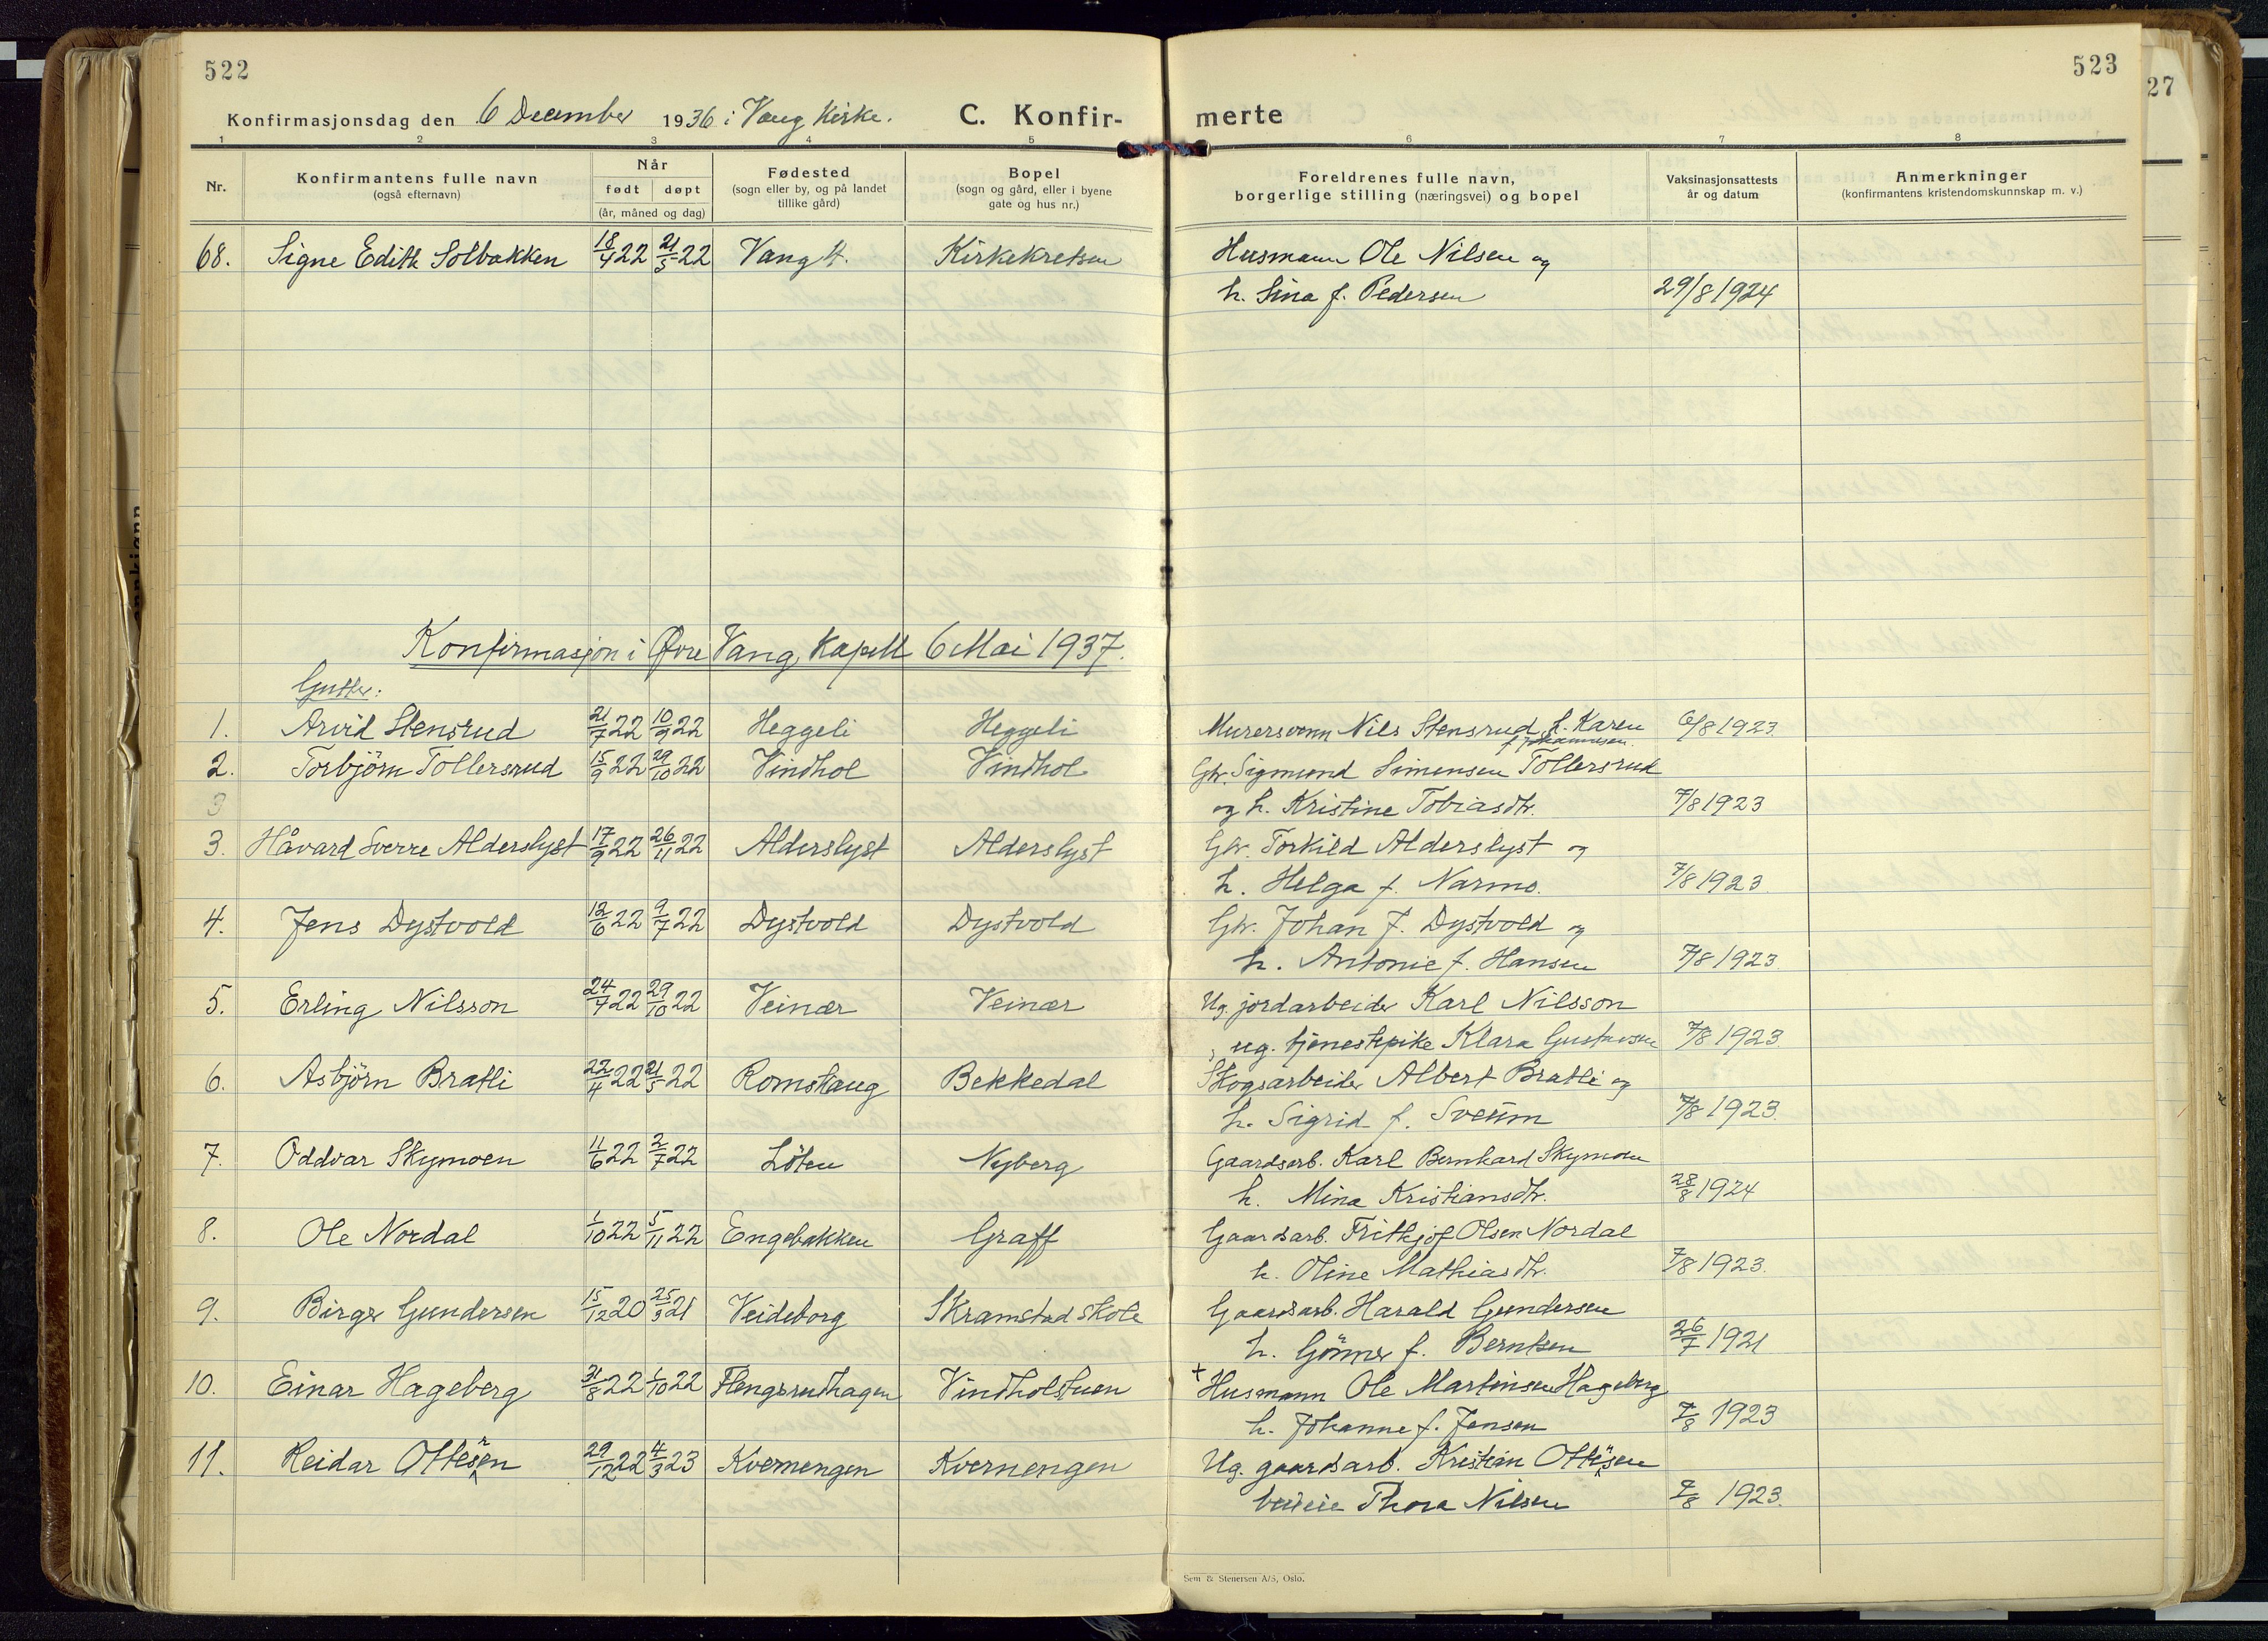 522
Konfirmasjonsdag den 6 December 1936 i Vang Kirke.
C. Konfir-
1 2 3 4 5
Nr. Konfirmantens fulle navn (også efternavn) Når født døpt (år, måned og dag) Fødested (sogn eller by, og på landet tillike gård) Bopel (sogn og gård, eller i byene gate og hus nr.)
68. Signe Edith Solbakken 18/4 22 21/5 22 Vang H. Kirkekretsen
Konfirmasjon i Øvre Vang Kapell 6 Mai 1937.
Gutter:
1. Arvid Stensrud 21/7 22 10/9 22 Heggeli Heggeli
2. Torbjörn Tollersrud 15/9 22 29/10 22 Vindhol Vindhol
3
3. Håvard Sverre Alderslyst 17/9 22 26/11 22 Alderslyst Alderslyst
4. Jens Dystvold 12/6 22 9/7 22 Dystvold Dystvold
5. Erling Nilsson 24/7 22 29/10 22 Veinær Veinær
6. Asbjörn Bratli 22/4 22 21/5 22 Romshaug Bekkedal
7. Oddvar Skymoen 11/6 22 2/7 22 Löten Nyberg
8. Ole Nordal 1/10 22 5/11 22 Engebakken Graff
9. Birger Gundersen 15/12 20 25/3 21 Veideborg Skramstad skole
10. Einar Hageberg 31/8 22 1/10 22 Flengsrudhagen Vindholstuen
11. Reidar Ottesen 29/12 22 4/3 23 Kvernengen Kvernengen
523
merte
6 7 8
Foreldrenes fulle navn, borgerlige stilling (næringsvei) og bopel Vaksinasjonsattests år og datum Anmerkninger (konfirmantens kristendomskunnskap m. v.)
Husmann Ole Nilsen og
h. Sina f. Pedersen 29/8 1924
Murersvenn Nils Stensrud, h. Karen 6/8 1923.
f. Johannesen.
Gbr. Sigmund Simensen Tollersrud
og h. Kristine Tobiasdtr. 7/8 1923
Gbr. Torkild Alderslyst og
h. Helga f. Narmo. 7/8 1923.
Gbr. Johan J. Dystvold og
h. Antonie f. Hansen 7/8 1923.
Ug. jordarbeider Karl Nilsson
, ug. tjenestepike Klara Gustavsen 7/8 1923.
Skogsarbeider Albert Bratli og
h. Sigrid f. Sveum 7/8 1923.
Gaardsarb. Karl Bernhard Skymoen
h. Mina Kristiansdtr. 28/8 1924
Gaardsarb. Frithjof Olsen Nordal
h. Oline Mathiasdtr. 7/8 1923.
Gaardsarb. Harald Gundersen
h. Gönner f. Berntsen 26/7 1921
+ Husmann Ole Martinsen Hageberg
h. Johanne f. Jensen 7/8 1923
Ug. gaardsarb. Kristian Ottesen
Thora Nilsen 7/8 1923.
Sem & Stenersen A/S, Oslo.
27